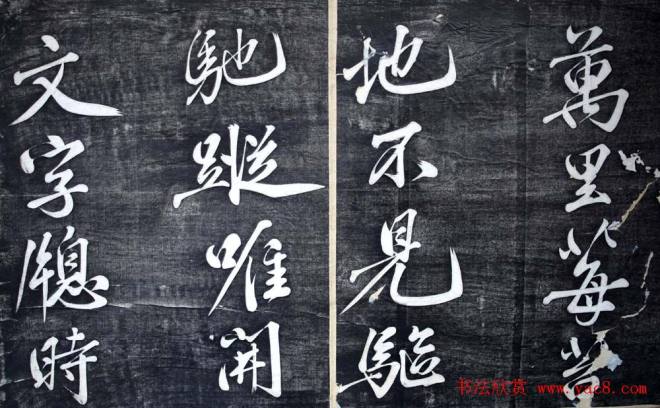 萬里莓苔
地不見驅
馳蹤唯開
文字牕時
书法欣赏 www.yac8.com